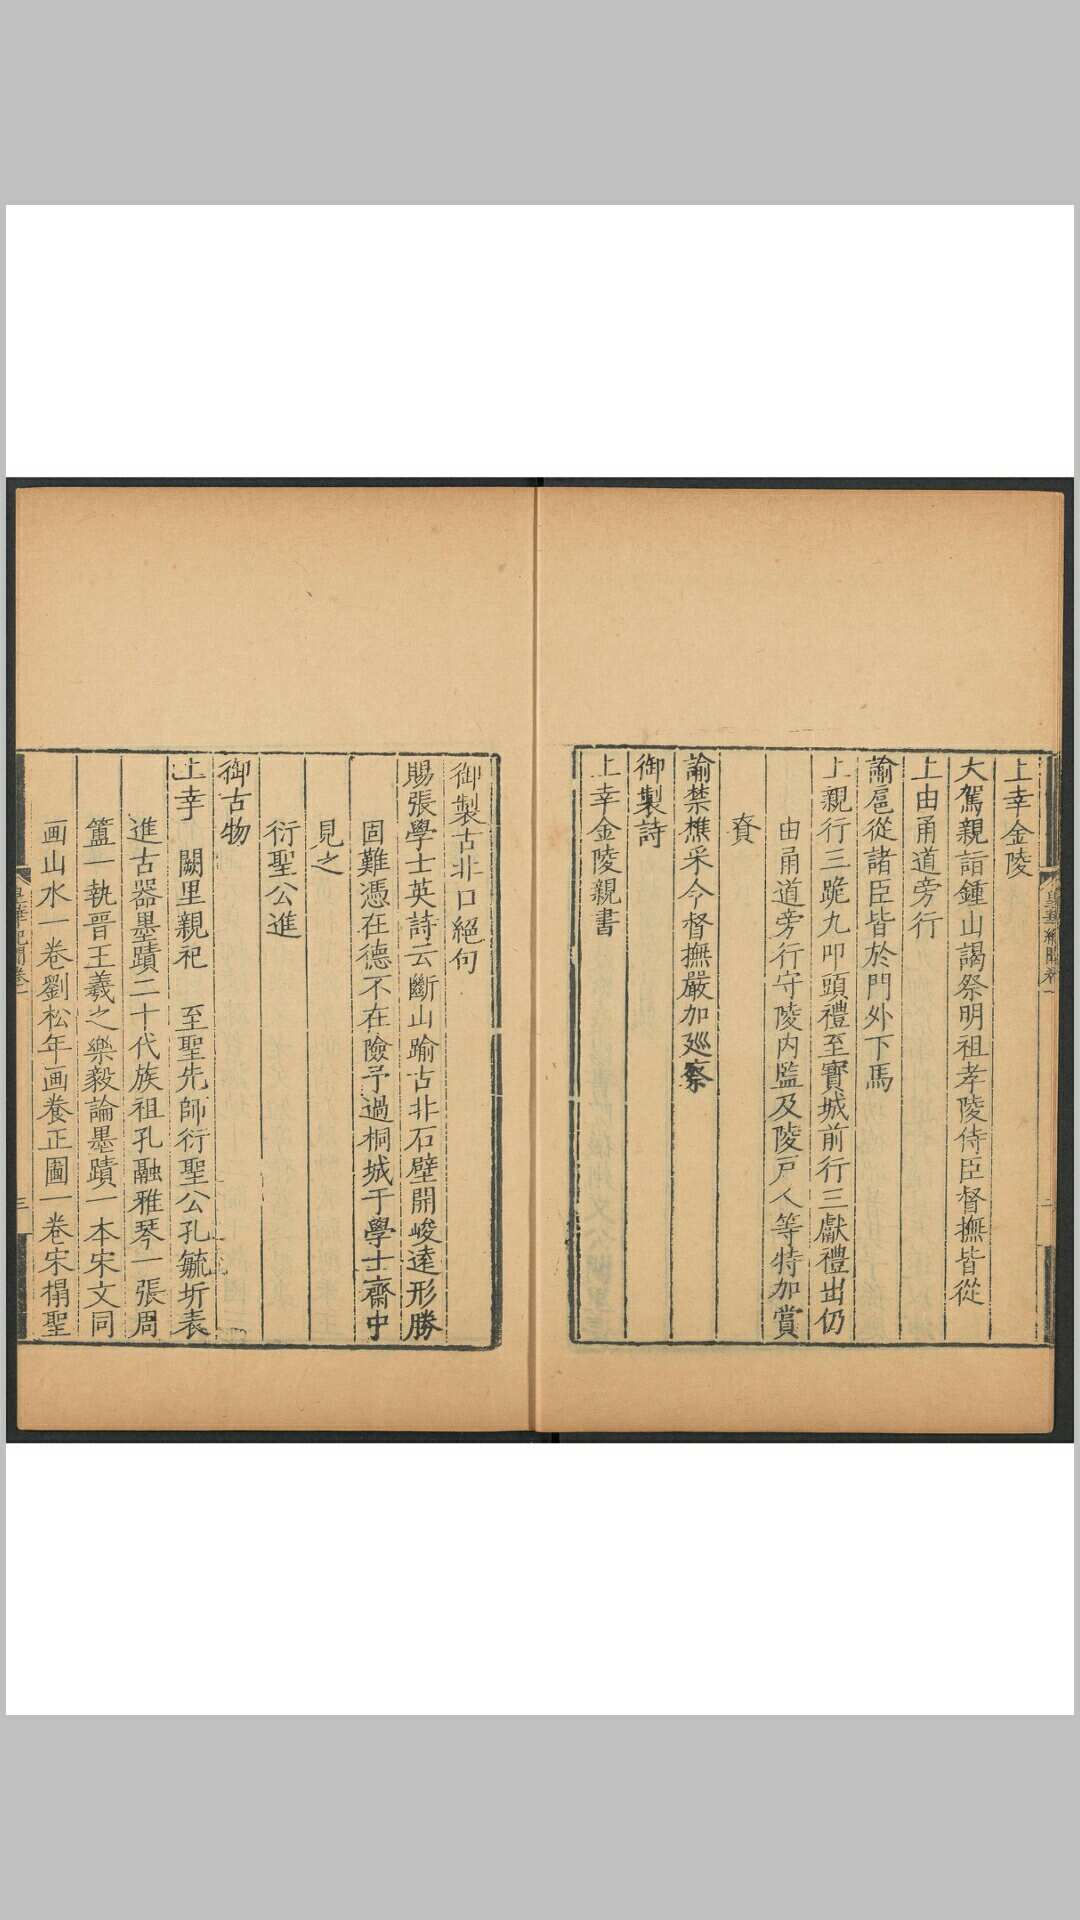 上幸金陵
大駕親詣鍾山謁祭明祖孝陵侍臣督撫皆從
上由甬道旁行
諭扈從諸臣皆於門外下馬
上親行三跪九叩頭禮至寶城前行三獻禮出仍
由甬道旁行守陵內監及陵戶人等特加賞
賚
諭禁樵采令督撫嚴加廵察
御製詩
上幸金陵親書
御製古北口絕句
賜張學士英詩云斷山踰古北石壁開峻遠形勝
固難憑在德不在險予過桐城于學士齋中
見之
衍聖公進
御古物
上幸 闕里親祀 至聖先師衍聖公孔毓圻表
進古器墨蹟二十代族祖孔融雅琴一張周
簠一執晉王羲之樂毅論墨蹟一本宋文同
画山水一卷劉松年画養正圖一卷宋搨聖
皇華紀聞卷一
三